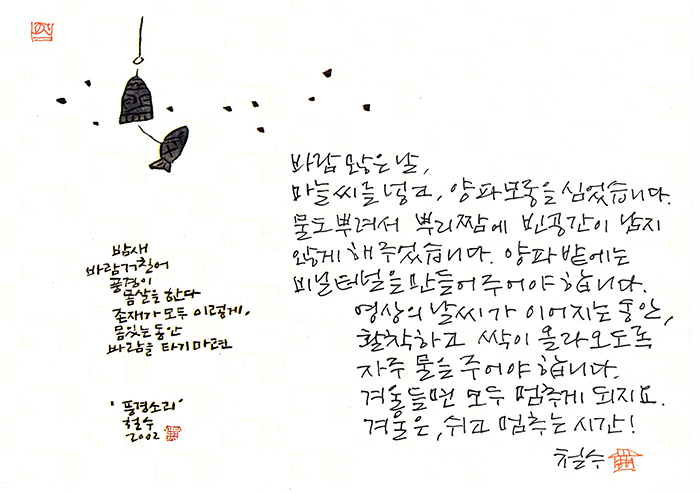 밤새
바람거칠어
풍경이
몸살을 한다
존재가 모두 이렇게,
몸짓는동안
바람을 타기 마련
'풍경소리'
철수
2002
바람 모않은 날,
마늘씨를 넣고, 양파모종을 심었습니다.
물도뿌려서 뿌리짬에 빈공간이 남지
않게 해주었습니다. 양파 밭에는
비닐터널을 만들어주어야합니다.
영상의 날씨가 이어지는 동안,
활착하고 싹이 올라오도록
자주 물을 주어야 합니다.
겨울들면 모두 멈추게 되지요.
겨울은, 쉬고 멈추는 시간!
철수